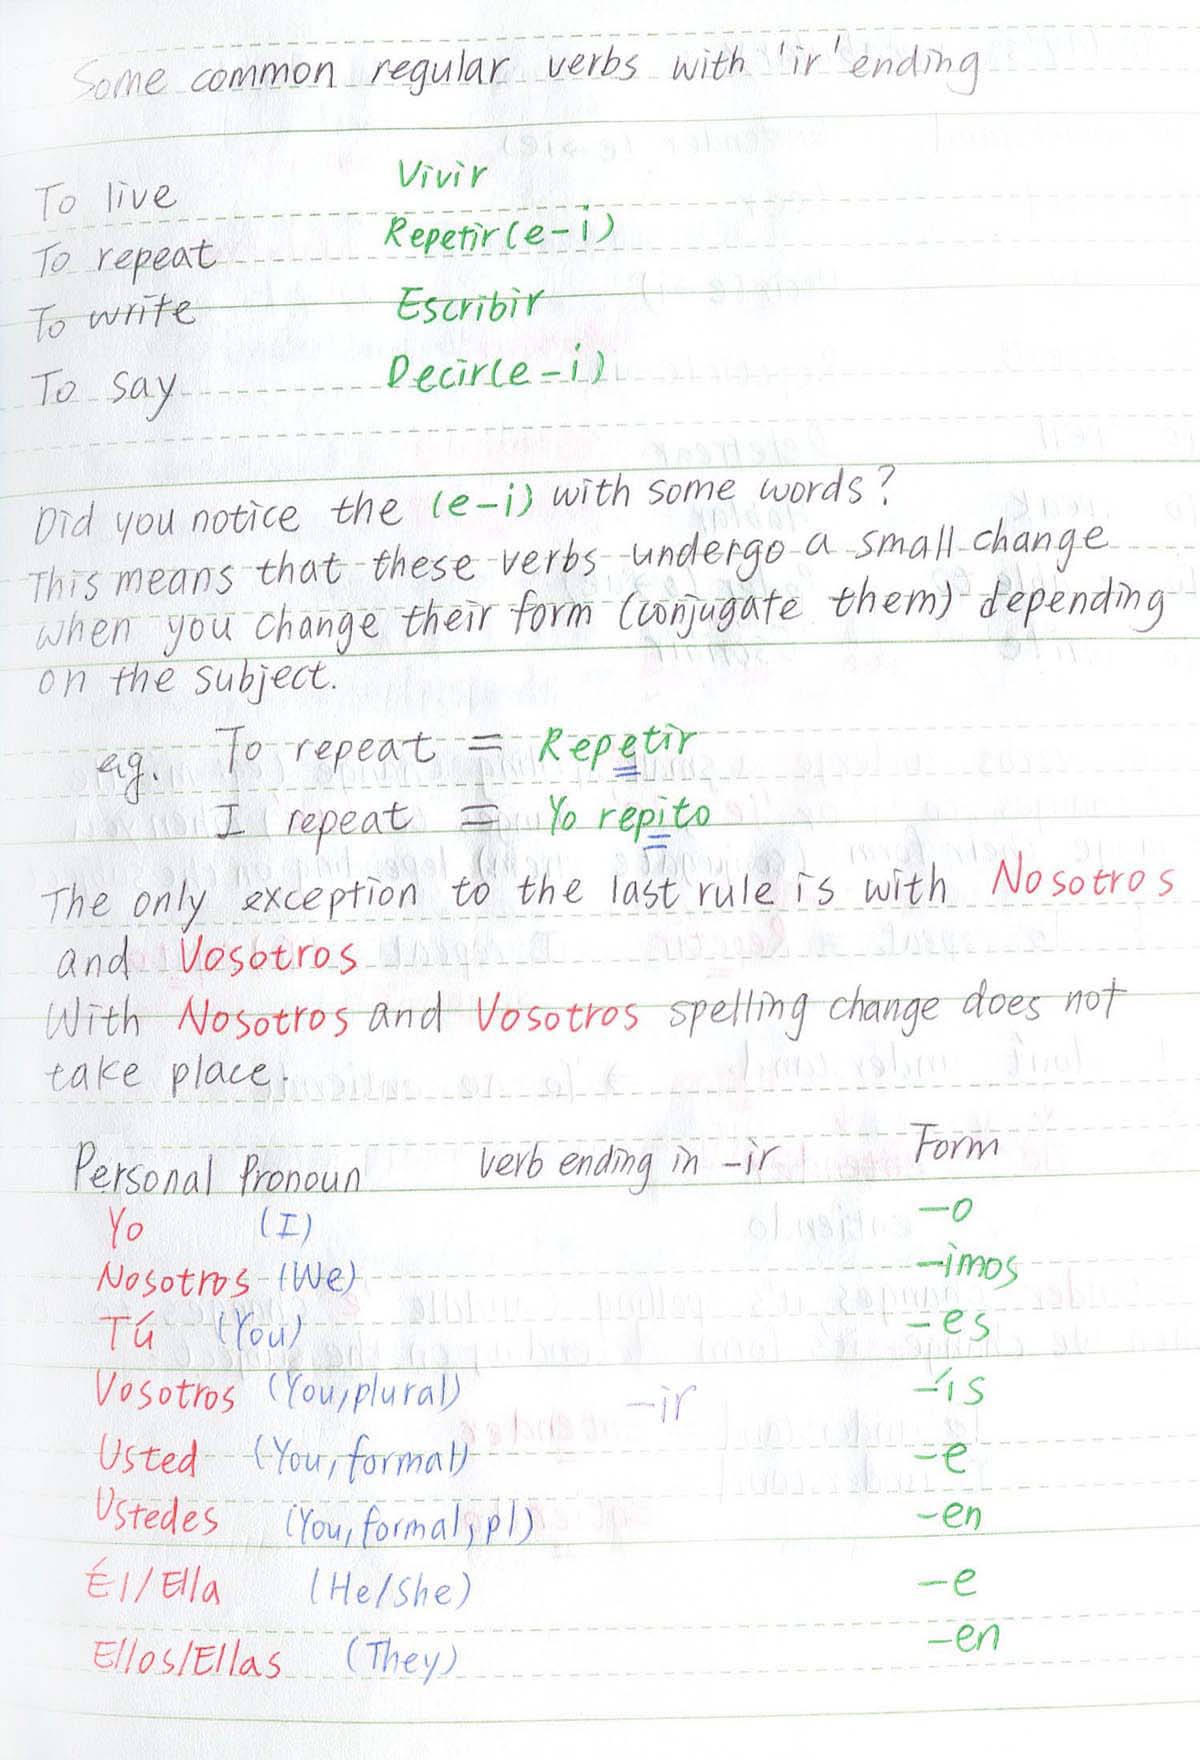 Some common regular verbs with 'ir' ending
To live Vivir
To repeat Repetir (e-i)
To write Escribir
To say Decir (e-i)
Did you notice the (e-i) with some words?
This means that these verbs undergo a small change
when you change their form (conjugate them) depending
on the subject.
eg. To repeat = Repetir
I repeat = Yo repito
The only exception to the last rule is with Nosotros
and Vosotros
With Nosotros and Vosotros spelling change does not
take place.
Personal Pronoun verb ending in -ir Form
Yo (I) -o
Nosotros (We) -imos
Tú (You) -es
Vosotros (You, plural) -ir -ís
Usted (You, formal) -e
Ustedes (You, formal, pl) -en
Él/Ella (He/She) -e
Ellos/Ellas (They) -en